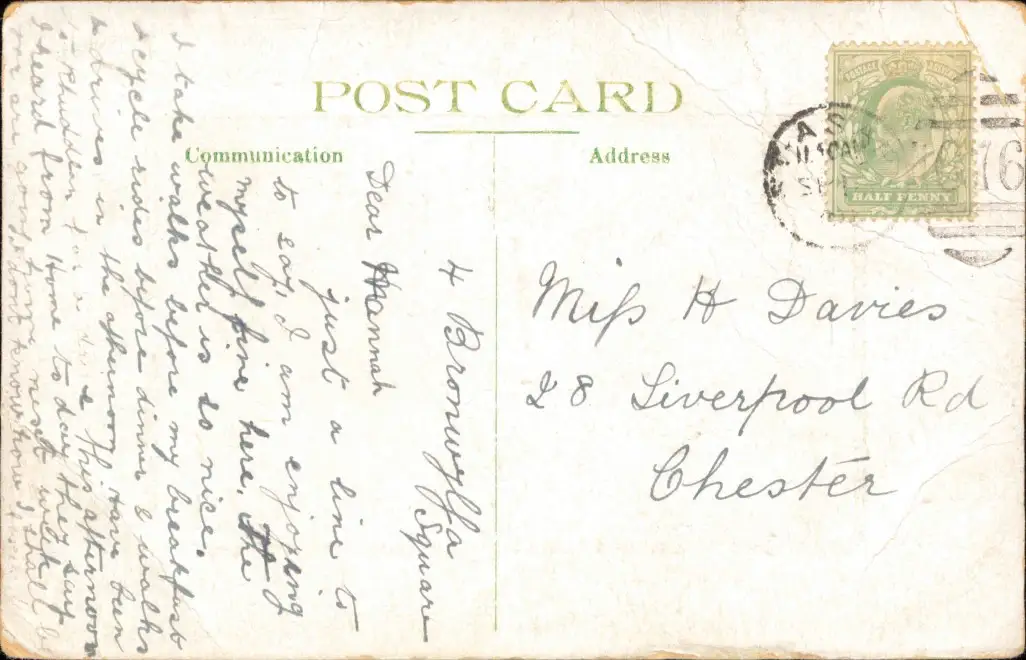 POST CARD
Communication
Address
HALF PENNY
4 Bronwylfa
Square
Dear Hannah
just a line to
to say, I am enjoying
myself fine here. the
weather is so nice.
I take walks before my breakfast
& cycle rides before dinner & walks
& drives in the afternoon. have been
to Rhuddlan for a this afternoon
I heard from Home to day they say
you are going home next week
Miss H Davies
28 Liverpool Rd
Chester